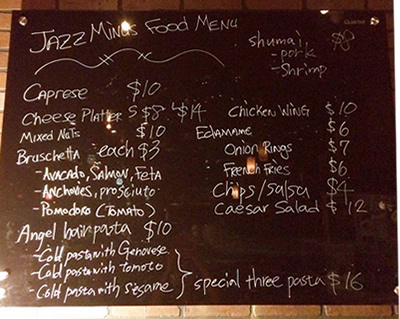 Jazz Minus Food Menu
Shumai $8
- pork
- Shrimp
Caprese $10
Cheese Platter S $8 L $14
Mixed Nuts $10
Bruschetta each $3
- Avocado, Salmon, Feta
- Anchovies, prosciuto
- Pomodoro (Tomato)
Angel hair pasta $10
- Cold pasta with Genovese
- Cold pasta with tomoto
- Cold pasta with sesame
special three pasta $16
Chicken Wing $10
Edamame $6
Onion Rings $7
French Fries $6
Chips/salsa $4
Caesar Salad $12